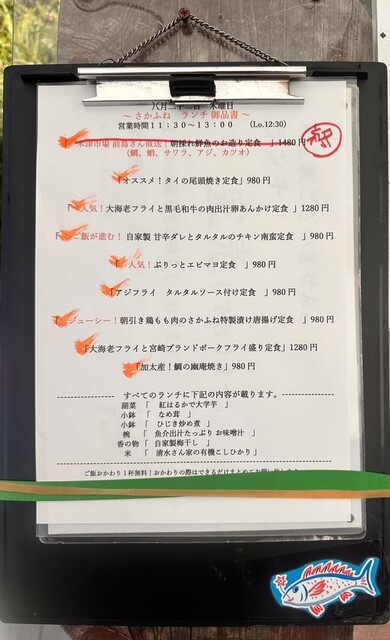 八月二十二日 木曜日
～ さかふね ランチ 御品書 ～
営業時間11：30～13：00 （Lo.12:30）
木津市場 前島さん直送！朝採れ鮮魚のお造り定食 」1480円
（鯛、蛸、サワラ、アジ、カツオ）
「オススメ！タイの尾頭焼き定食」980円
「 人気！大海老フライと黒毛和牛の肉出汁卵あんかけ定食 」1280円
「 ご飯が進む！自家製 甘辛ダレとタルタルのチキン南蛮定食 」980円
「 人気！ぷりっとエビマヨ定食 」980円
「アジフライ タルタルソース付け定食 」980円
「 ジューシー！朝引き鶏もも肉のさかふね特製漬け唐揚げ定食 」980円
「大海老フライと宮崎ブランドポークフライ盛り定食」1280円
「加太産！鯛の幽庵焼き」980円
すべてのランチに下記の内容が載ります。
副菜 「 紅はるかで大学芋 」
小鉢 「 なめ茸 」
小鉢 「 ひじき炒め煮 」
椀 「 魚介出汁たっぷり お味噌汁 」
香の物 「 自家製梅干し 」
米 「 清水さん家の有機こしひかり 」
ご飯おかわり1杯無料！おかわりの際はできるだけまとめて